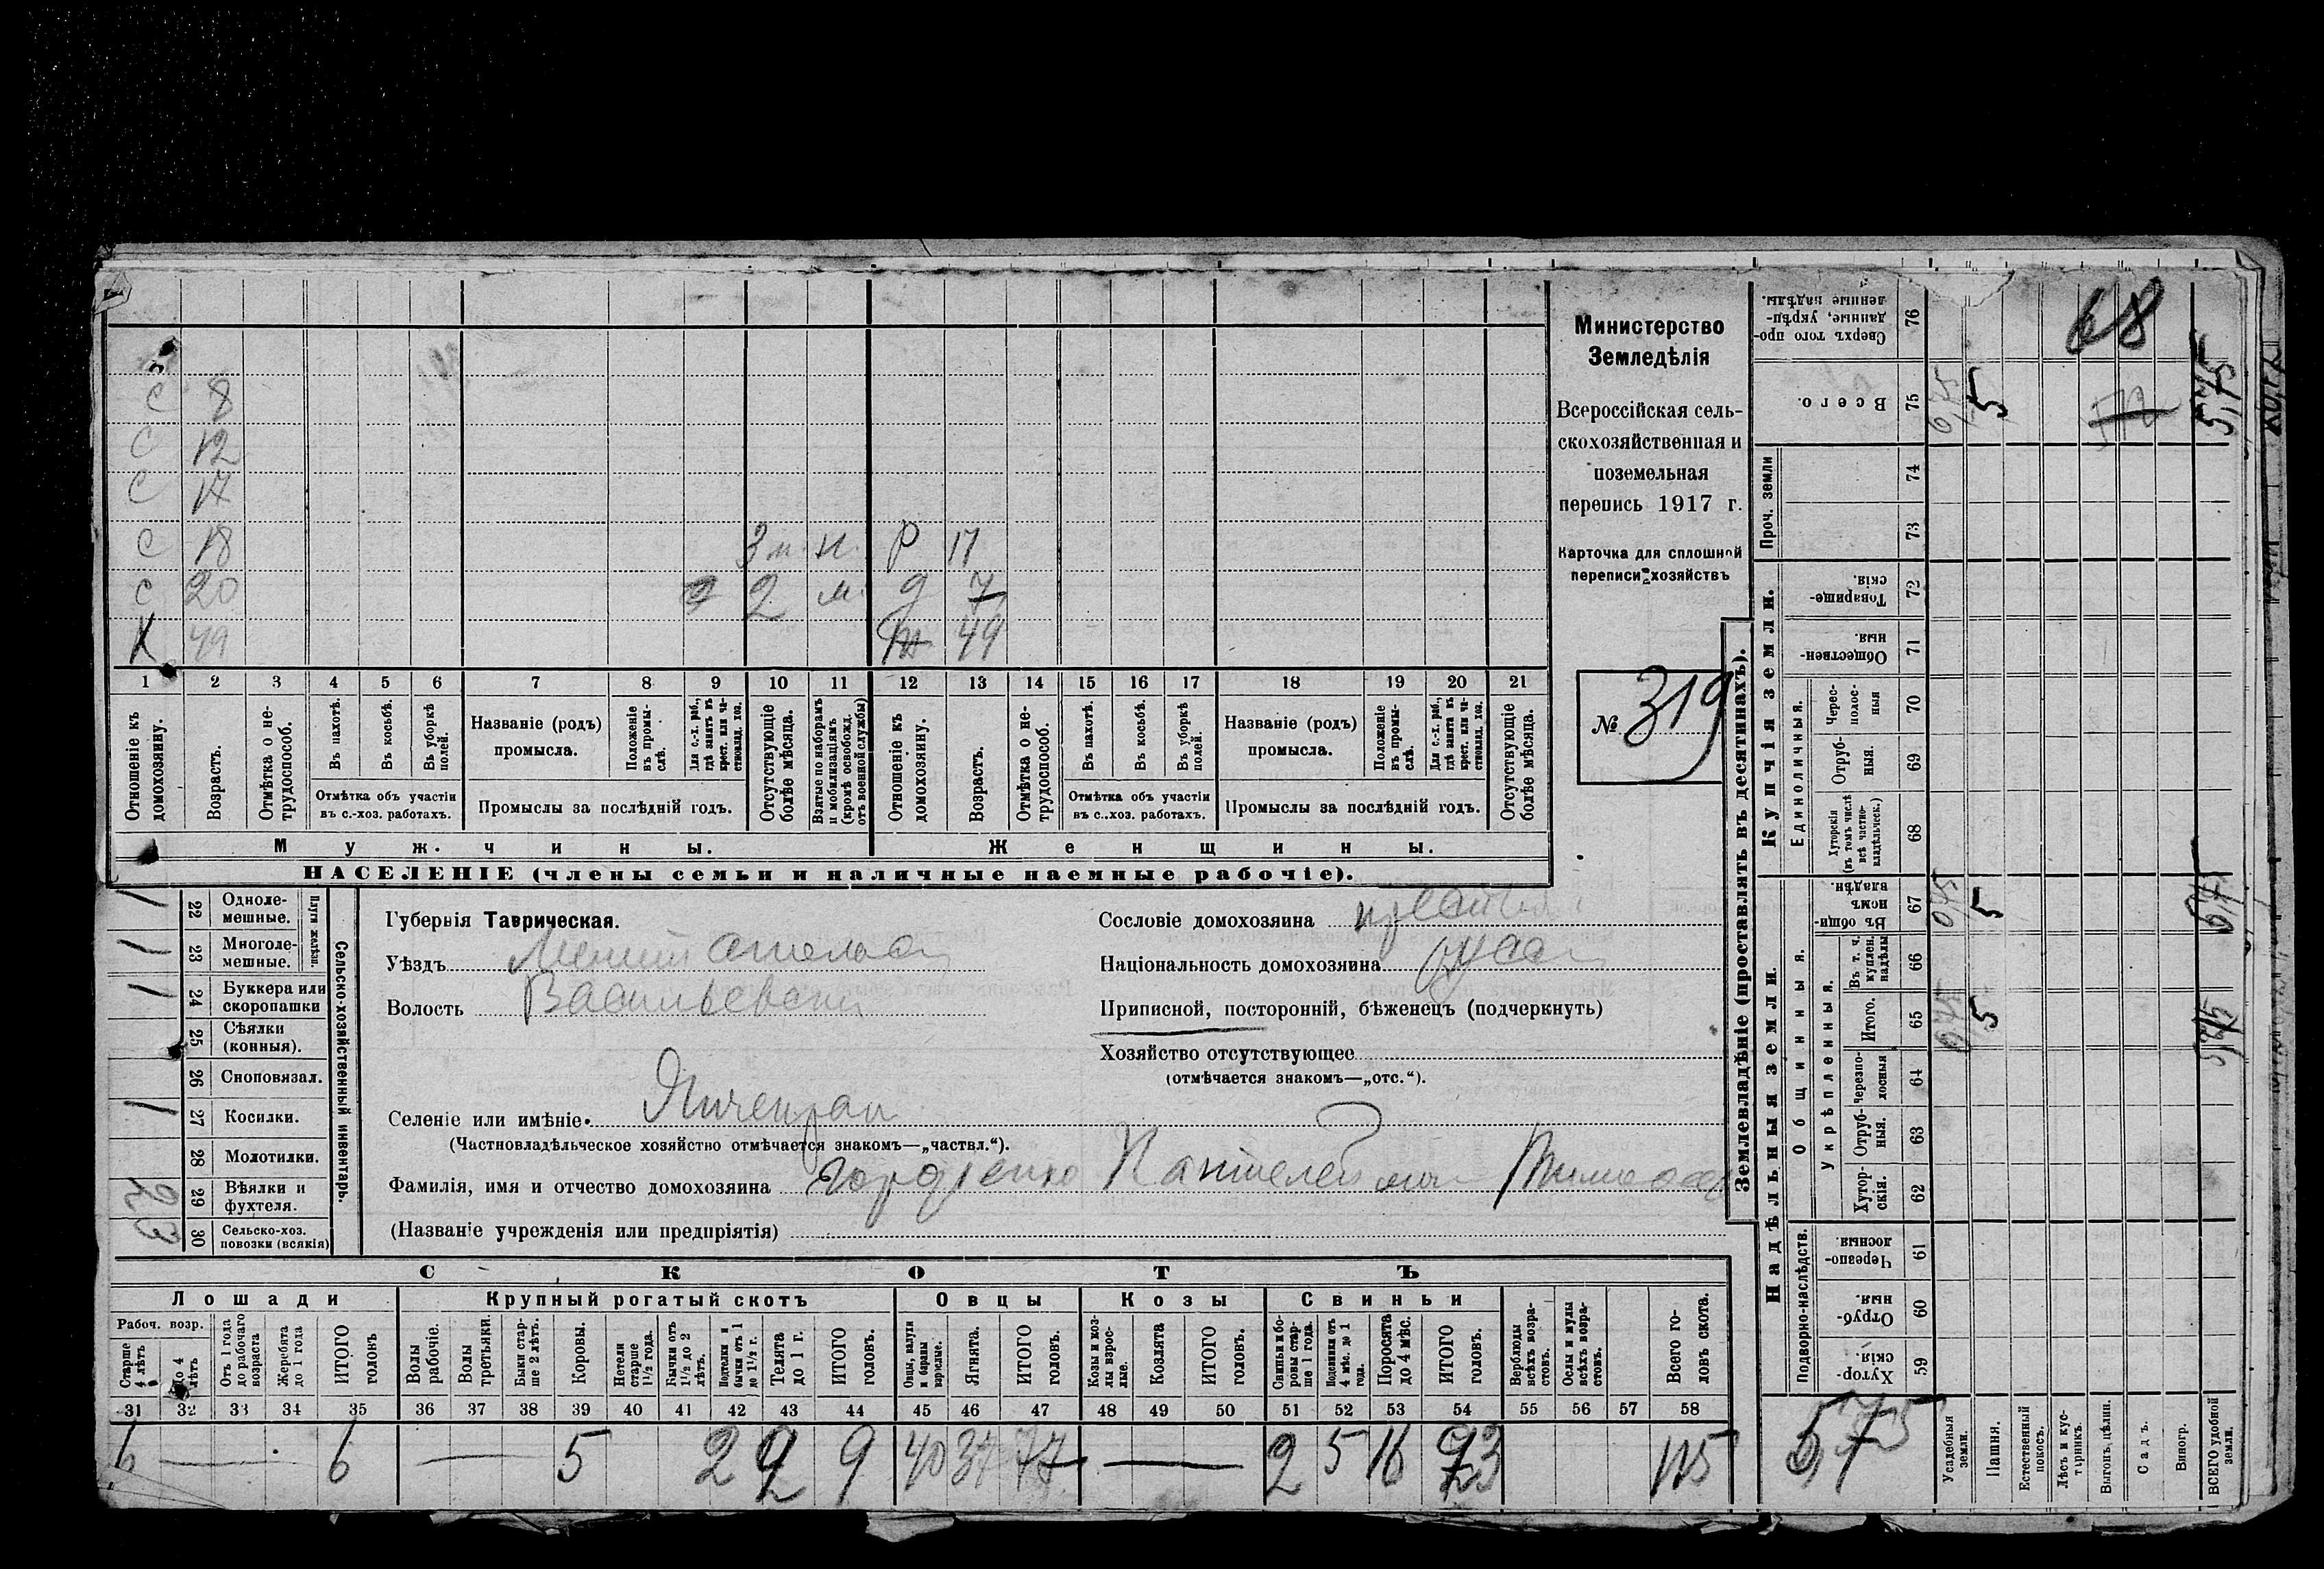 С 8
С 12
С 17
С 18 3 м. н. Р 17
С 20 2 м. д 7
К 49 49
1 2 3 4 5 6 7 8 9 10 11 12 13 14 15 16 17 18 19 20 21
Отношеніе къ домохозяину.
Возрастъ.
Отмѣтка о не-трудоспособ.
Въ пахотѣ.
Въ косьбѣ.
Въ уборкѣ полей.
Отмѣтка объ участіи
въ с.-хоз. работахъ.
Названіе (родъ)
промысла.
Положеніе въ промы-слѣ.
Для с.-х. раб., гдѣ занятъ въ крест. или ча-стновлад. хоз.
Промыслы за послѣдній годъ.
Отсутствующіе болѣе мѣсяца.
Взятые по наборамъ и мобилизаціямъ (кромѣ освобожд. отъ военной службы)
Отношеніе къ домохозяину.
Возрастъ.
Отмѣтка о не-трудоспособ.
Въ пахотѣ.
Въ косьбѣ.
Въ уборкѣ полей.
Отмѣтка объ участіи
въ с..хоз. работахъ.
Названіе (родъ)
промысла.
Положеніе въ промы-слѣ.
Для с.-х. раб., гдѣ занята въ крест. или ча-стновлад. хоз.
Промыслы за послѣдній годъ.
Отсутствующіе болѣе мѣсяца.
Мужчины. Женщины.
НАСЕЛЕНІЕ (члены семьи и наличные наемные рабочіе).
Министерство
Земледѣлія
Всероссійская сель-
скохозяйственная и
поземельная
перепись 1917 г.
Карточка для сплошной
переписи хозяйствъ
№ 319
Сельско-хозяйственный инвентарь.
Плуги желѣзн.
1 22 Одноле-мешные.
1 23 Многоле-мешные.
1 24 Буккера или скоропашки
25 Сѣялки (конныя).
26 Сноповязал.
1 27 Косилки.
28 Молотилки.
29 Вѣялки и фухтеля.
30 Сельско-хоз. повозки (всякія)
Губернія Таврическая.
Уѣздъ
Волость Васильевская
Селеніе или имѣніе
(Частновладѣльческое хозяйство отмѣчается знакомъ—„частвл.“).
Фамилія, имя и отчество домохозяина Пантелеймон
(Названіе учрежденія или предпріятія)
Сословіе домохозяина
Національность домохозяина
Приписной, посторонній, бѣженецъ (подчеркнуть)
Хозяйство отсутствующее
(отмѣчается знакомъ—„отс.“).
СКОТЪ
Лошади
Крупный рогатый скотъ
Овцы
Козы
Свиньи
Рабоч. возр.
Старше 4 лѣтъ
До 4 лѣтъ
Отъ 1 года до рабочаго возраста
Жеребята до 1 года
ИТОГО головъ
Волы рабочіе.
Волы третьяки.
Быки стар-ше 2 лѣтъ.
Коровы.
Нетели старше 1½ года.
Бычки отъ 1½ до 2 лѣтъ.
Подтелки и бычки отъ 1 до 1½ г.
Телята до 1 г.
ИТОГО головъ.
Овцы, валухи и бараны взрослые.
Ягнята.
ИТОГО головъ.
Козы и коз-лы взрос-лые.
Козлята
ИТОГО головъ.
Свиньи и бо-ровы стар-ше 1 года.
Подсвинки отъ 4 мѣс. до 1 года.
Поросята до 4 мѣс.
ИТОГО головъ.
Верблюды всѣхъ возра-стовъ.
Ослы и мулы всѣхъ возра-стовъ.
Всего го-ловъ скота.
31 32 33 34 35 36 37 38 39 40 41 42 43 44 45 46 47 48 49 50 51 52 53 54 55 56 57 58
6 — 6 — 5 2 2 9 40 37 77 — 2 5 16 23 115
Землевладѣніе (проставлять въ десятинахъ).
Надѣльныя земли.
Купчія земли.
Проч. земли
Подворно-наслѣдств.
Общинныя.
Укрѣпленныя.
Единоличныя.
Сверхъ того про-данные, укрѣп-ленные надѣлы. 76
Всего. 75
74
73
Товарище-скія. 72
Обществен-ныя. 71
Черес-полос-ныя 70
Отруб-ныя. 69
Хуторскія (въ томъ числѣ всѣ частно-владѣльческ.) 68
Въ общи-номъ владѣн. 67
Въ т. ч. куплен. надѣлы 66
Итого. 65
Черезпо-лосныя 64
Отруб-ныя. 63
Хутор-скія. 62
Черезпо-лосныя 61
Отруб-ныя. 60
Хутор-скія. 59
68
5 5,75
5
5
5,75
Усадебныя земли.
Пашня.
Естественный покосъ.
Лѣсъ и кус-тарникъ.
Выгонъ, цѣлин.
Садъ.
Виногр.
ВСЕГО удобной земли.